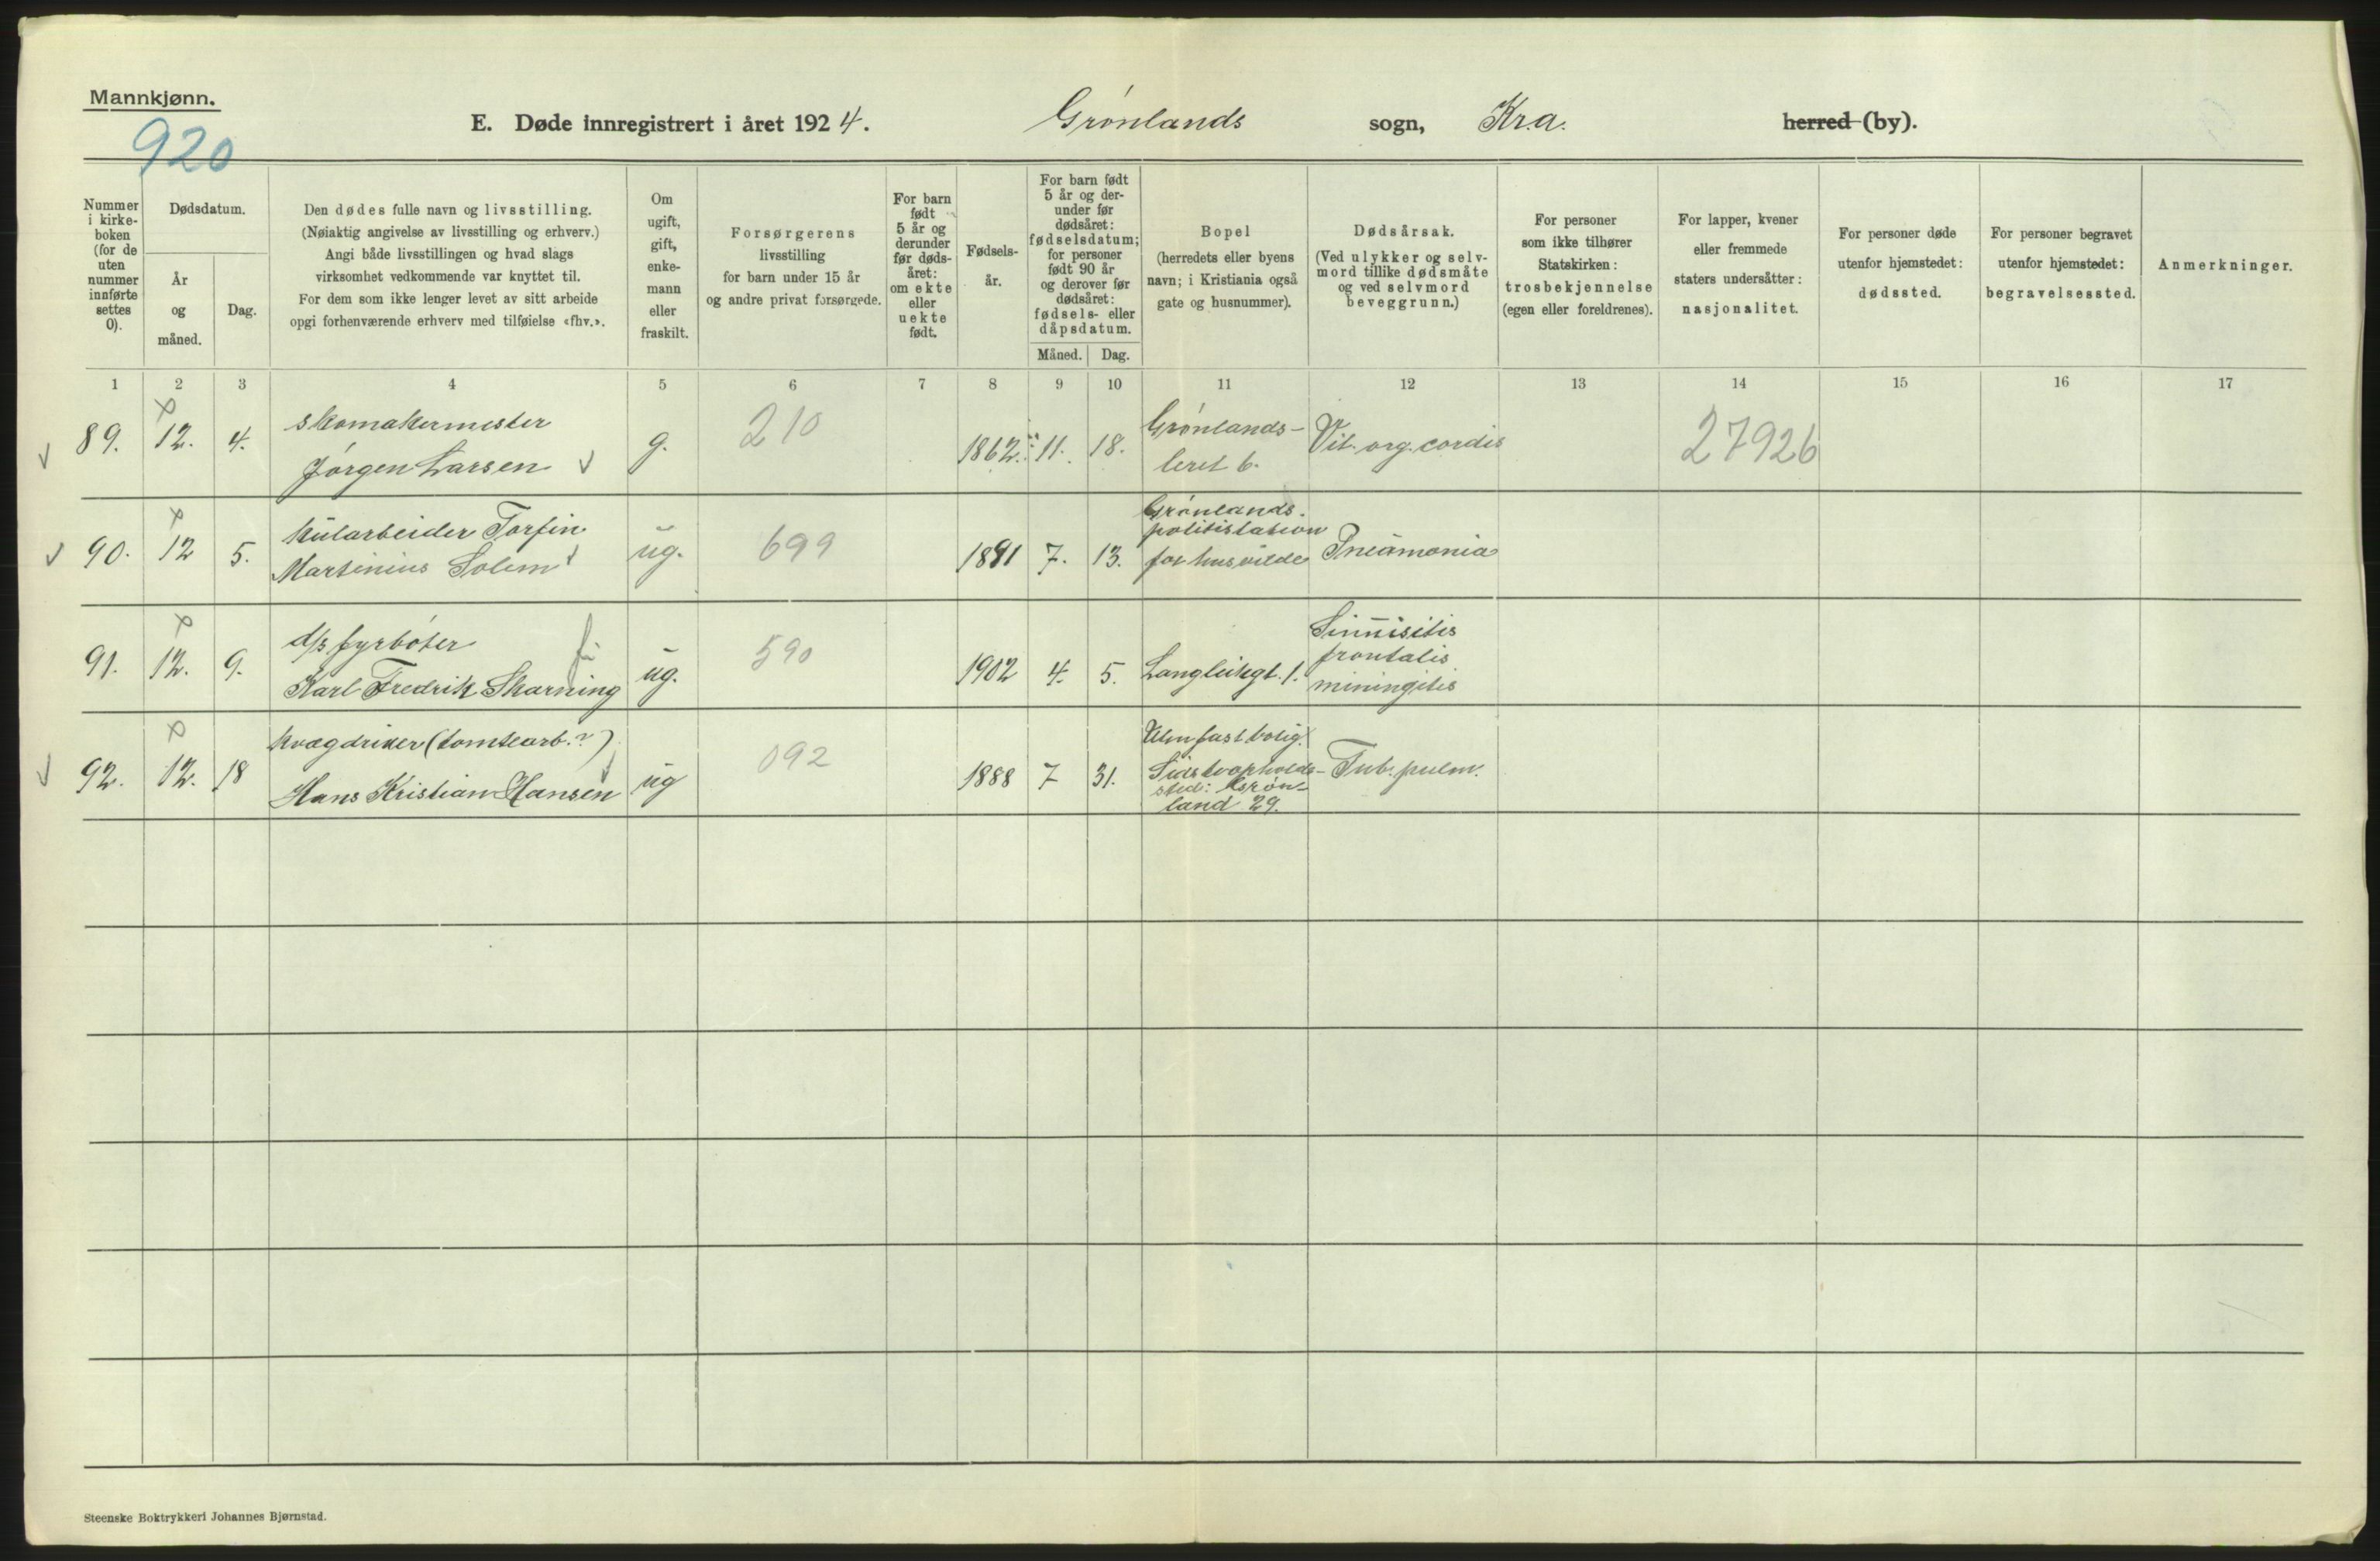 Mannkjønn.
920
E. Døde innregistrert i året 1924. Grønlands sogn, Kr.a. herred (by).
Nummer
i kirke-
boken
(for de
uten
nummer
innførte
settes
0).
Dødsdatum.
År
og
måned.
Dag.
Den dødes fulle navn og livsstilling.
(Nøiaktig angivelse av livsstilling og erhverv.)
Angi både livsstillingen og hvad slags
virksomhet vedkommende var knyttet til.
For dem som ikke lenger levet av sitt arbeide
opgi forhenværende erhverv med tilføielse «fhv.».
Om
ugift,
gift,
enke-
mann
eller
fraskilt.
Forsørgerens
livsstilling
for barn under 15 år
og andre privat forsørgede.
For barn
født
5 år og
derunder
før døds-
året:
om ekte
eller
uekte
født.
Fødsels-
år.
For barn født
5 år og der-
under før
dødsåret:
fødselsdatum;
for personer
født 90 år
og derover før
dødsåret:
fødsels- eller
dåpsdatum.
Måned. Dag.
Bopel
(herredets eller byens
navn; i Kristiania også
gate og husnummer).
Dødsårsak.
(Ved ulykker og selv-
mord tillike dødsmåte
og ved selvmord
beveggrunn.)
For personer
som ikke tilhører
Statskirken:
trosbekjennelse
(egen eller foreldrenes).
For lapper, kvener
eller fremmede
staters undersåtter:
nasjonalitet.
For personer døde
utenfor hjemstedet:
dødssted.
For personer begravet
utenfor hjemstedet:
begravelsessted.
Anmerkninger.
1 2 3 4 5 6 7 8 9 10 11 12 13 14 15 16 17
89. 12. 4.
skomakermester
Jørgen Larsen
g. 210 1862. 11. 18.
Grønlands-
leret 6.
Vit. org. cordis
27926
90. 12 5.
Torfin
Martinius Solem
ug. 699 1881 7. 13.
Grønlands.
politistation
for husvilde
Pneumonia
91. 12. 9.
d/s fyrbøter
Karl Fredrik Skarning
ug. 590 1902 4. 5.
Langleikgt. 1.
Sinuisitis
frontalis
miningitis
92. 12. 18
kvægdriver (tomtearb.?)
Hans Kristian Hansen
ug 092 1888 7 31.
Uten fast bolig.
Sidste opholds-
sted: Grøn-
land 29.
Tub. pulm.
Steenske Boktrykkeri Johannes Bjørnstad.